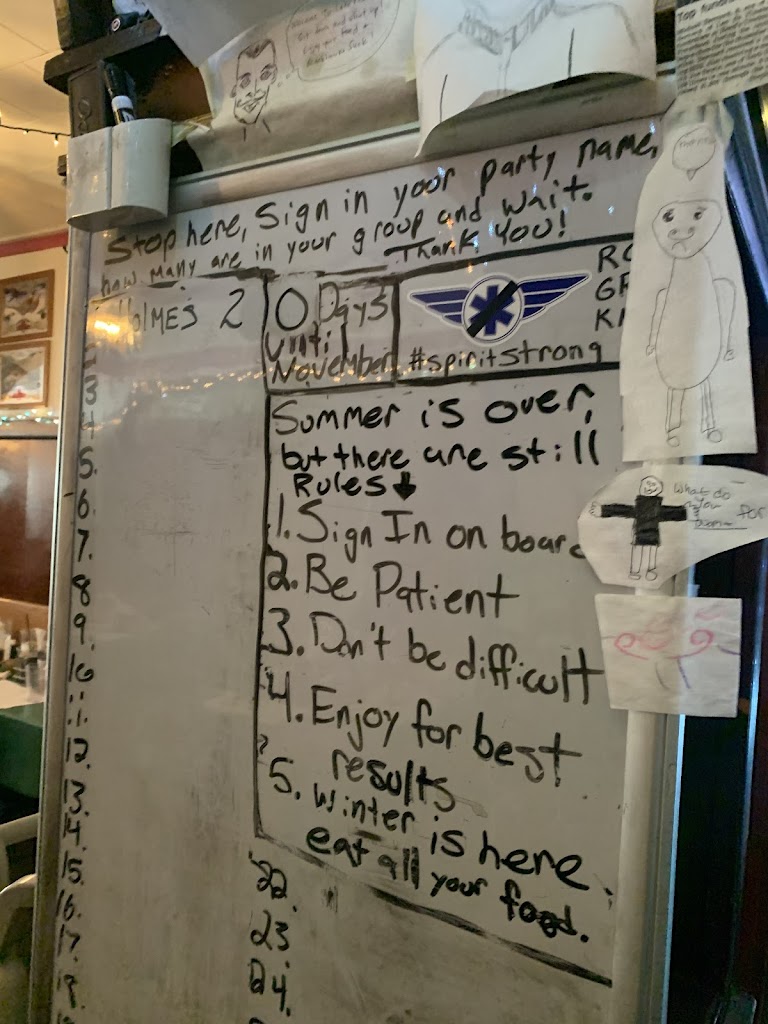 Stop here, Sign in your party name,
how many are in your group and wait.
Thank You!
HOLMES 2
0 Days
until
November
#spiritstrong
Summer is over,
but there are still
Rules
1. Sign In on board
2. Be Patient
3. Don't be difficult
4. Enjoy for best
results
5. Winter is here.
eat all your food.
3
4
5.
6.
7.
8
9.
10
11.
12.
13.
14.
15.
16.
17.
22.
23
24.
What do
you
for